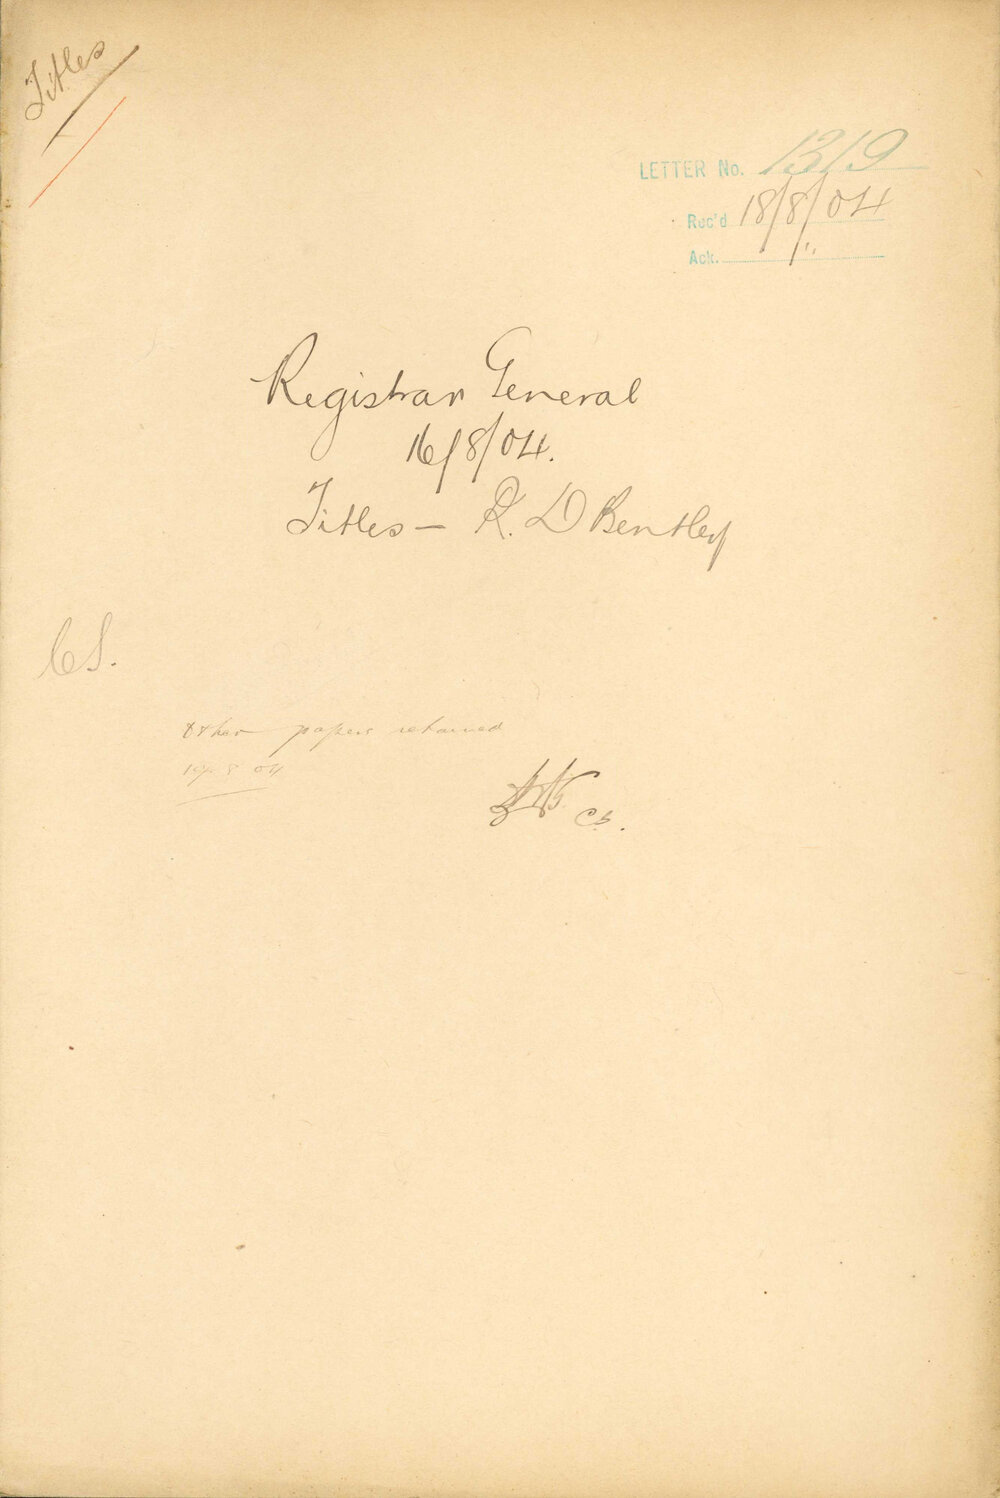 Titles
LETTER No. 1319
Rec'd 18/8/04
Ack. / "
Registrar General
16/8/04.
Titles - R. D Bentley
CS.
Other papers retained
19 8 04
CS.